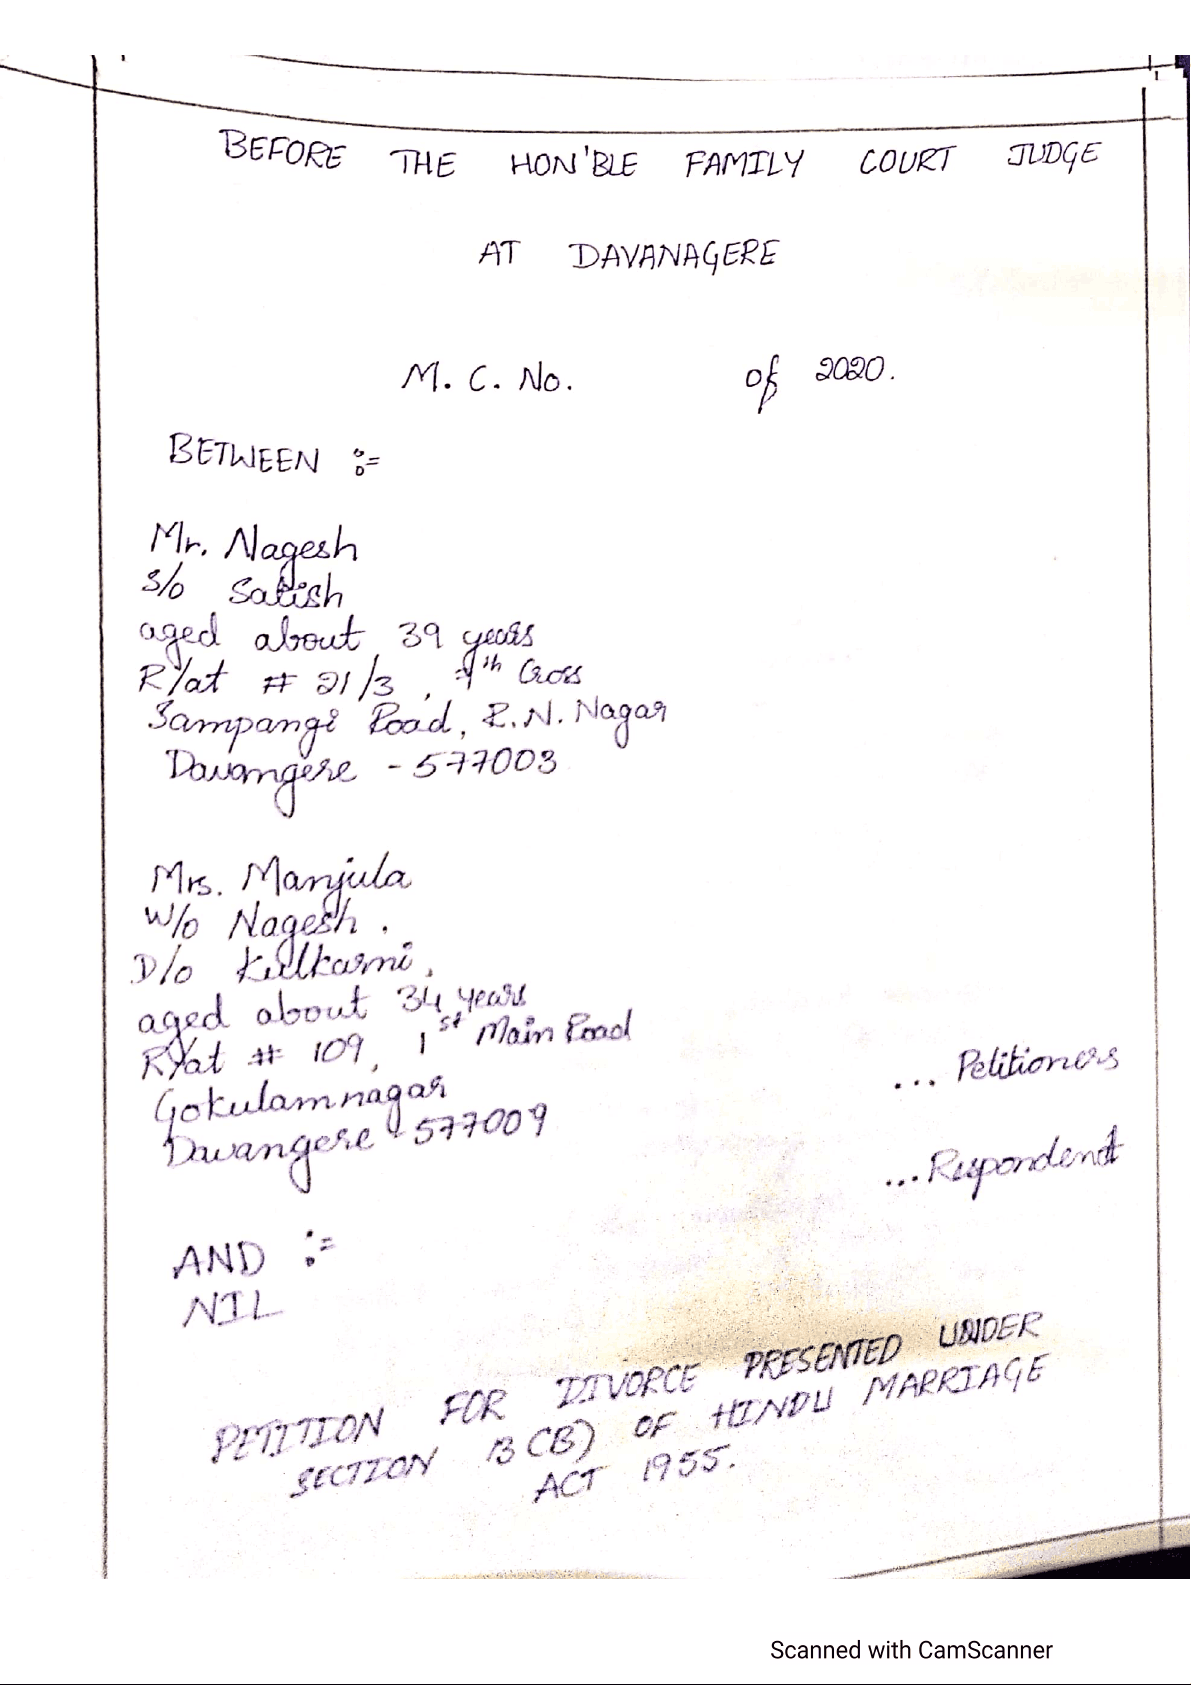 BEFORE THE HON'BLE FAMILY COURT JUDGE
AT DAVANAGERE
M. C. No. of 2020.
BETWEEN :=
Mr. Nagesh
S/o Satish
aged about 39 years
R/at # 21/3, 4th Cross
Sampangi Road, R.N. Nagar
Davangere - 577003
Mrs. Manjula
W/o Nagesh.
D/o Kulkarni,
aged about 34 years
R/at # 109, 1st Main Road
Gokulamnagar
Davangere - 577009
... Petitioners
... Respondent
AND :=
NIL
PETITION FOR DIVORCE PRESENTED UNDER
SECTION 13 (B) OF HINDU MARRIAGE
ACT 1955.
Scanned with CamScanner